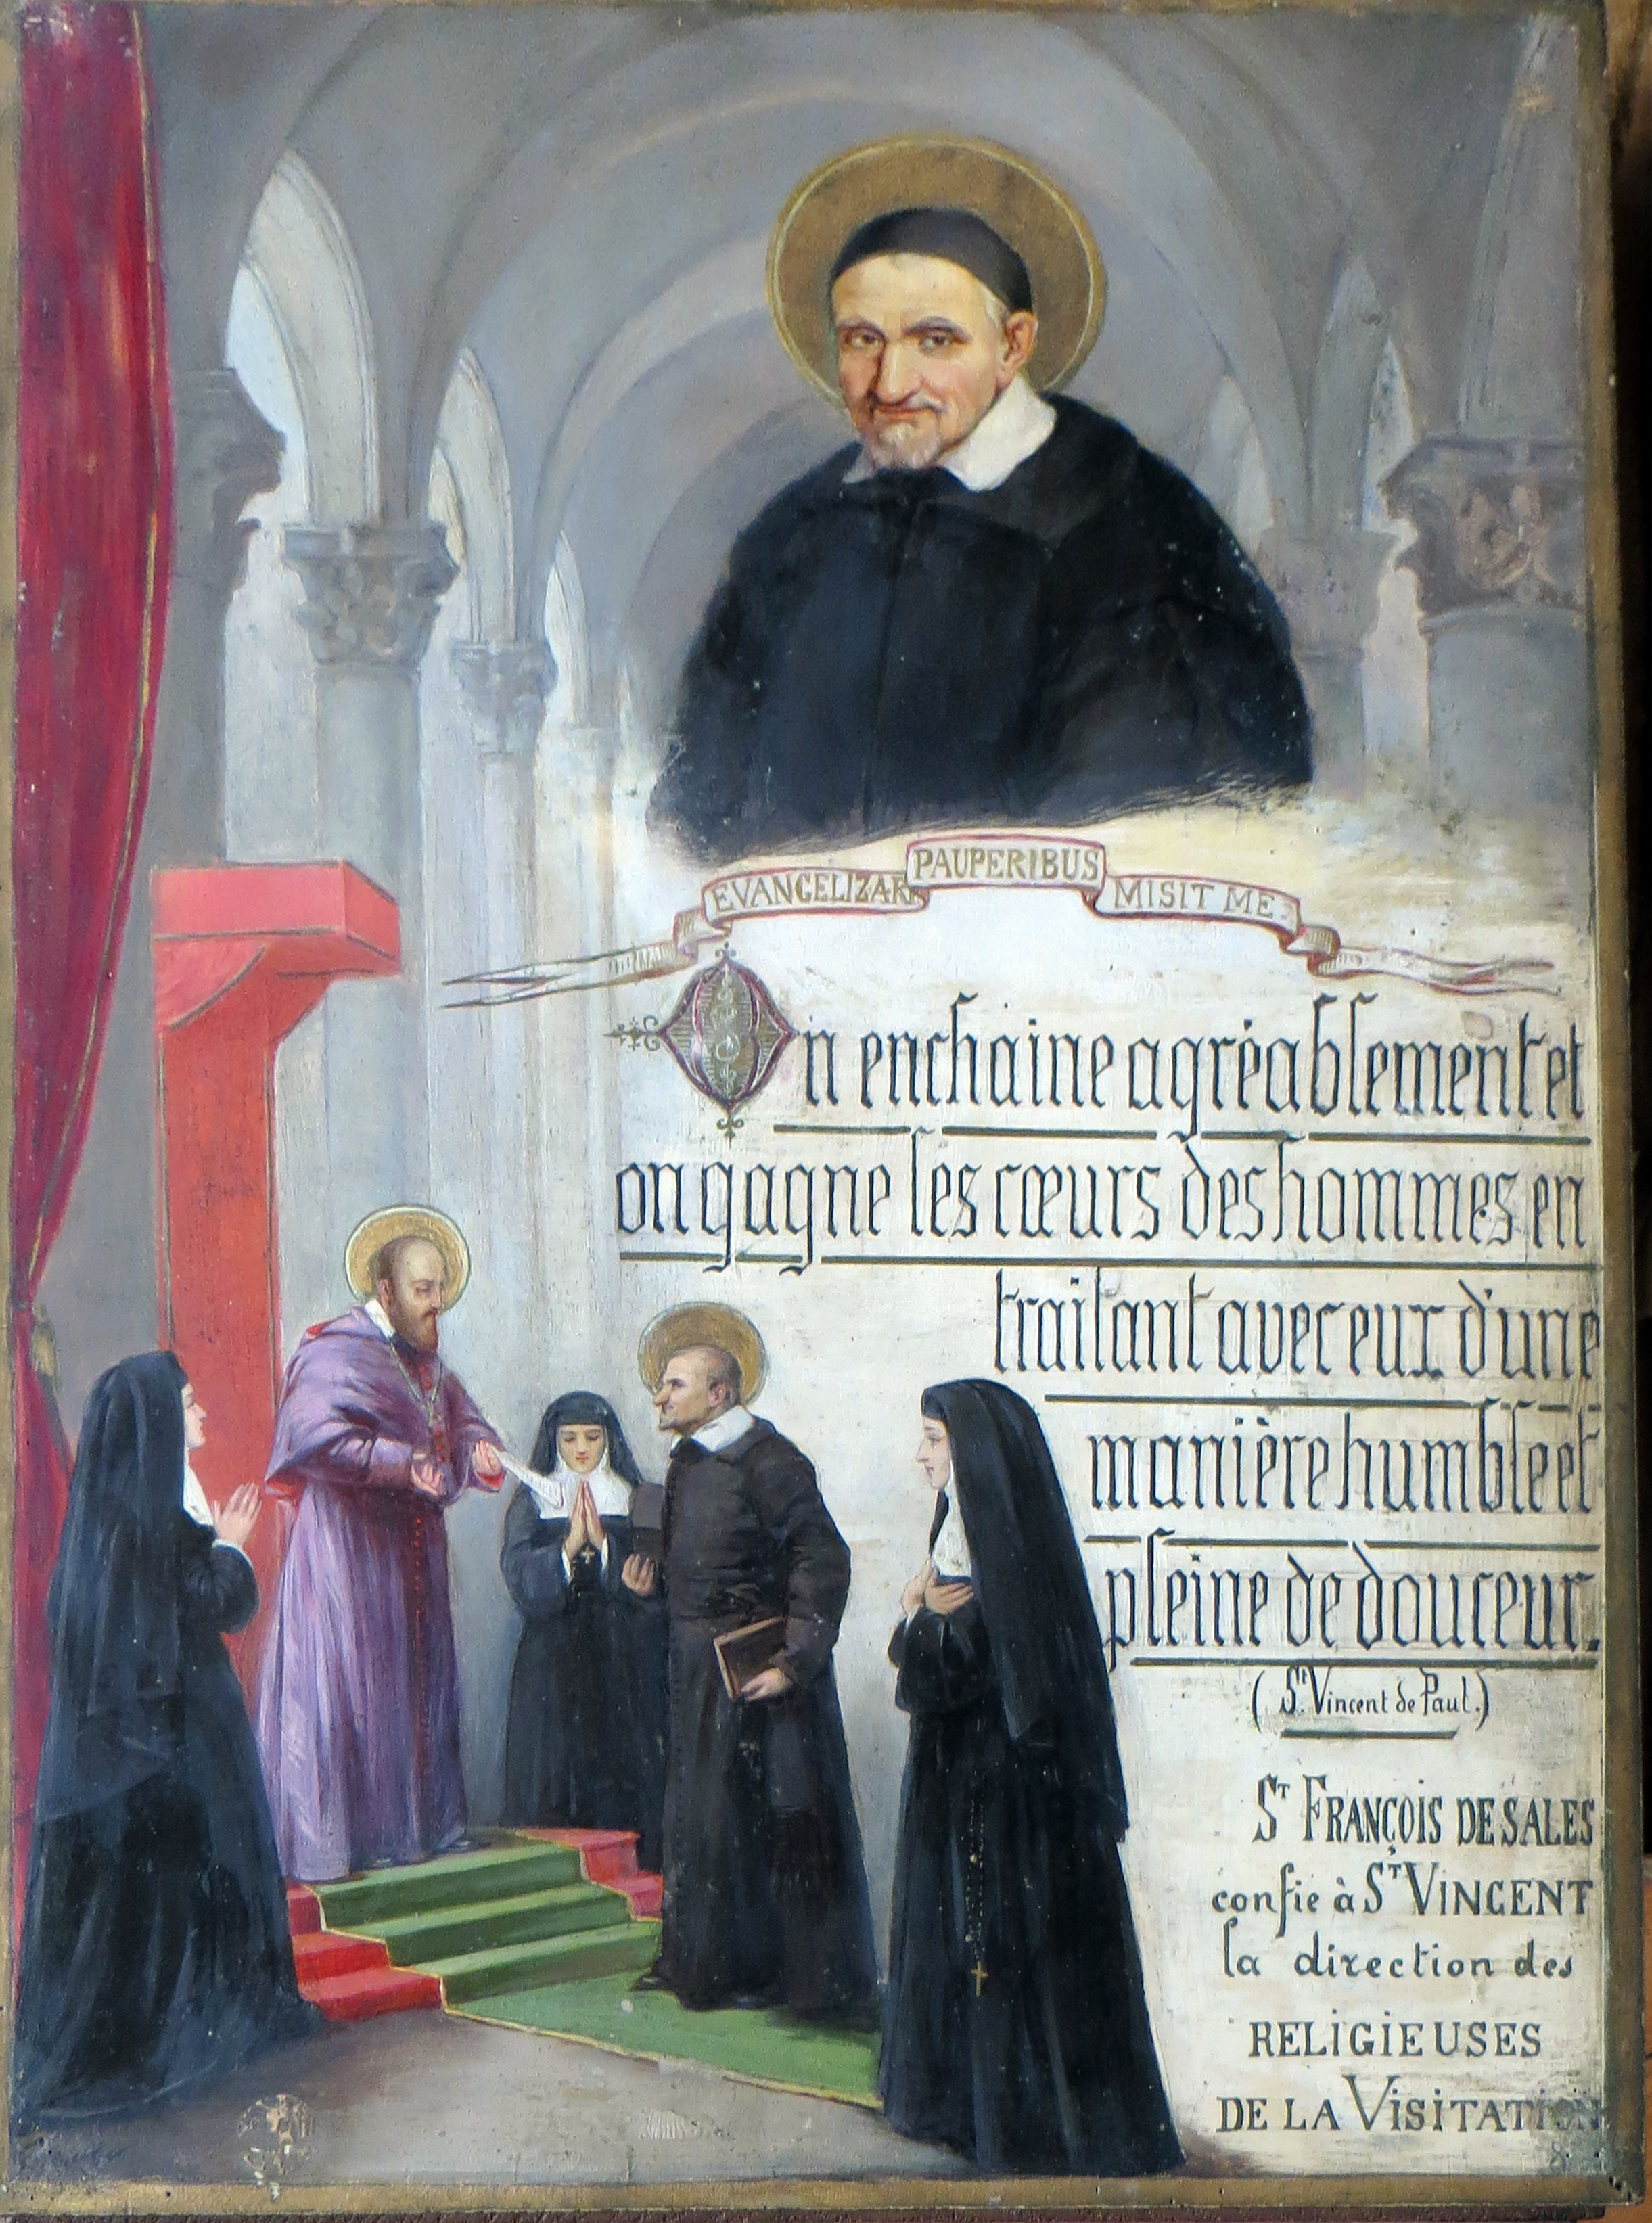 EVANGELIZARE PAUPERIBUS MISIT ME.
On enchaine agréablement et
on gagne les cœurs des hommes en
traitant avec eux d'une
manière humble et
pleine de douceur.
(St Vincent de Paul.)
ST FRANÇOIS DE SALES
confie à ST VINCENT
la direction des
RELIGIEUSES
DE LA VISITATION